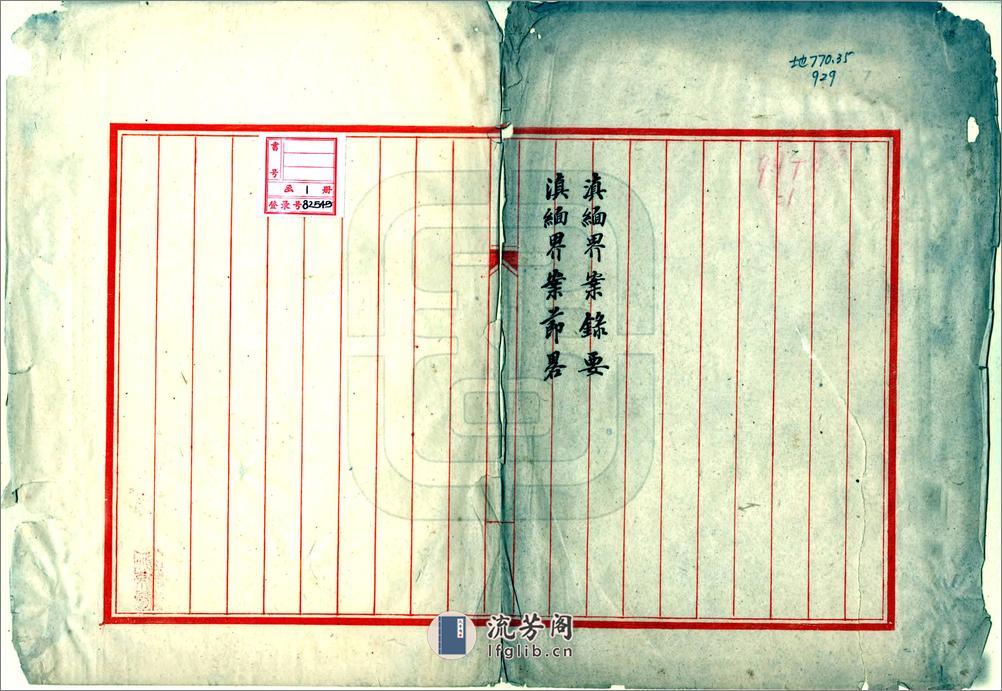 地770.35
929
滇緬界案錄要
滇緬界案節畧
書
号
函 1 册
登录号 82549
流芳阁
lfglib.cn